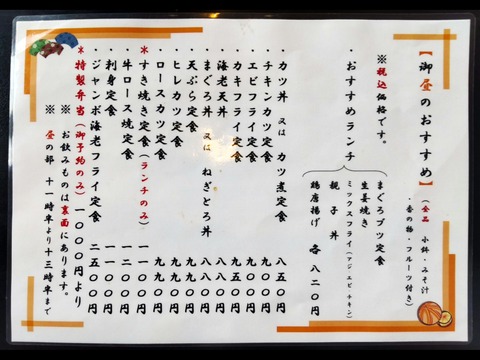 【御昼のおすすめ】(全品 小鉢・みそ汁
・香の物・フルーツ付き)
※税込価格です。
・おすすめランチ
まぐろブツ定食
生姜焼き
ミックスフライ(アジ エビ チキン)
親子丼
鶏唐揚げ 各 八二〇円
・カツ丼 又は カツ煮定食 八五〇円
・チキンカツ定食 八二〇円
・エビフライ定食 八二〇円
・カキフライ定食 九五〇円
・海老天丼 八八〇円
・まぐろ丼 又は ねぎとろ丼 八八〇円
・天ぷら定食 九九〇円
・ヒレカツ定食 九九〇円
・ロースカツ定食 九九〇円
*すき焼き定食(ランチのみ) 一一〇〇円
・牛ロース焼定食 一一〇〇円
・刺身定食 一二〇〇円
・ジャンボ海老フライ定食 二五〇〇円
*特製弁当(御予約のみ)一〇〇〇円より
※ お飲みものは裏面にあります。
※ 昼の部 十一時半より十三時半まで